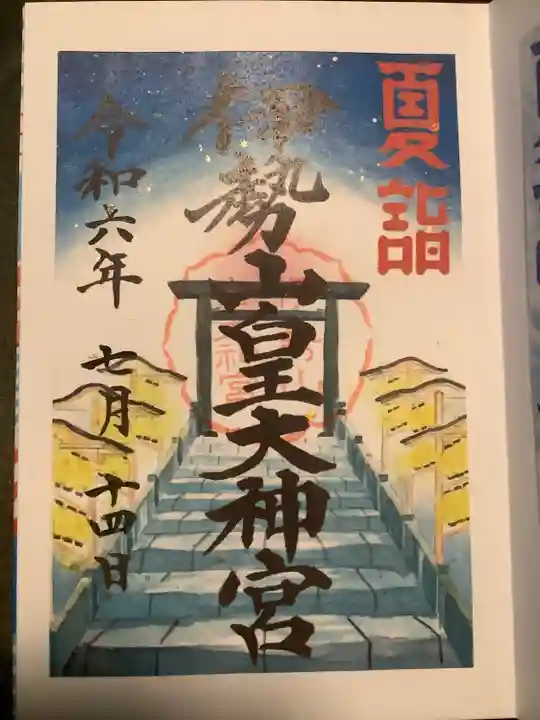 夏詣
伊勢山皇大神宮
令和六年 七月 十四日